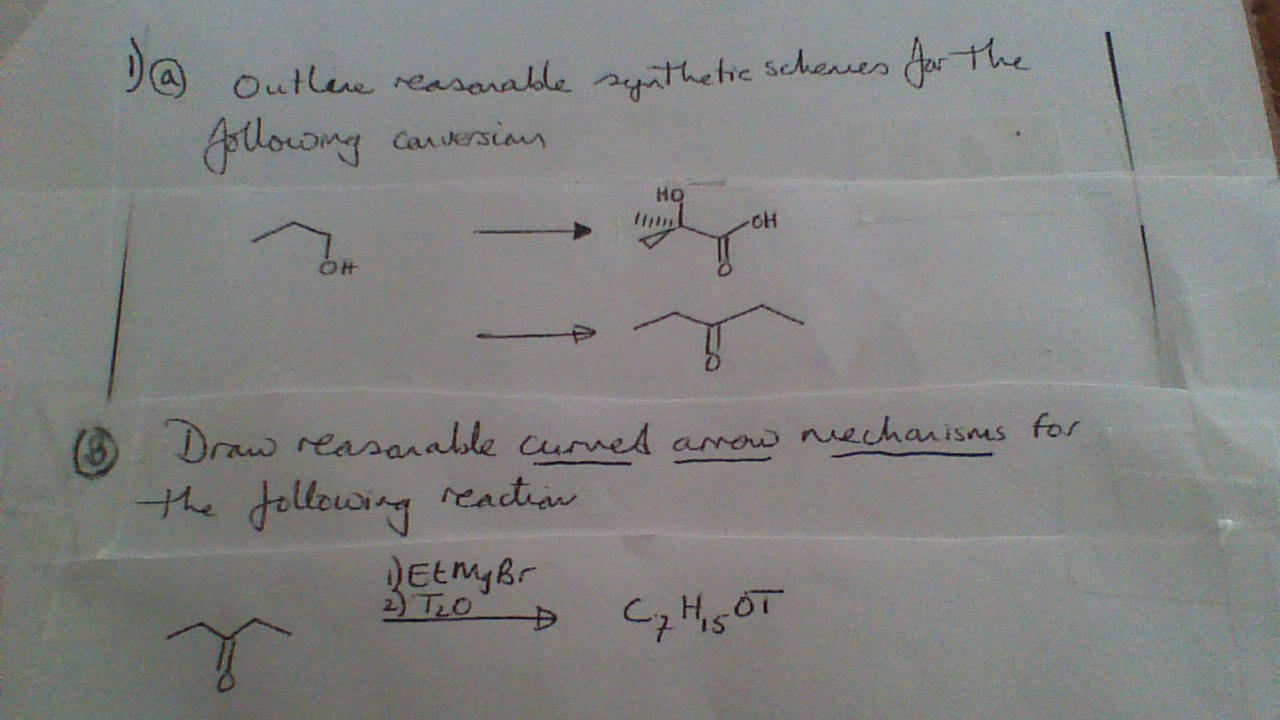 1) (a) Outline reasonable synthetic schemes for the
following conversion
HO
OH
O
OH
O
(b) Draw reasonable curved arrow mechanisms for
the following reaction
1) EtMgBr
2) T₂O
C₇H₁₅OT
O